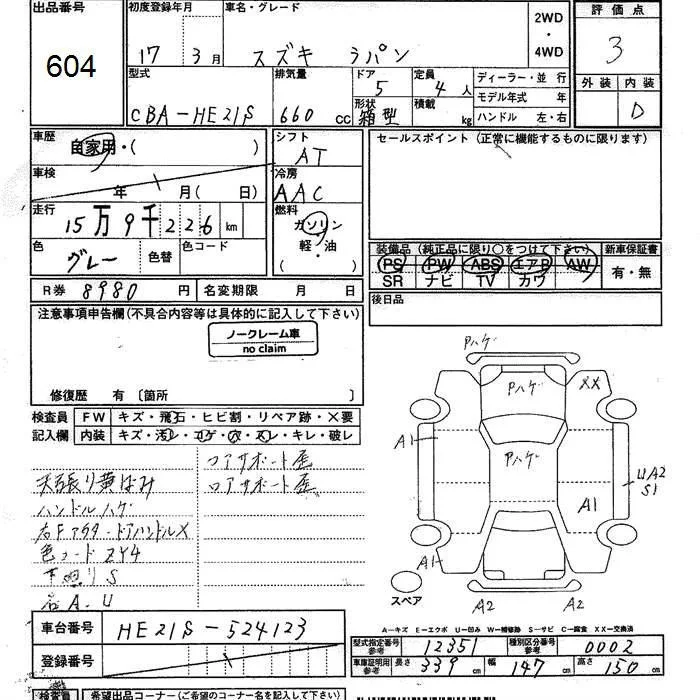 出品番号 初度登録年月 車名・グレード 2WD ・ 4WD 評価点
604 17 3月 スズキ ラパン 3
型式 排気量 ドア 定員 ディーラー・並 行 外装 内装
CBA-HE21S 660 CC 5 4人 モデル年式 年 D
形状 箱型 積載 kg ハンドル 左・右
車歴 自家用・( ) シフト AT セールスポイント(正常に機能するものに限ります)
車検 年 月( 日) 冷房 AAC
走行 15万9千226km 燃料 ガソリン
色 グレー 色替 色コード 軽・油 ( )
装備品(純正品に限り○をつけて下さい) 新車保証書
PS PW ABS エアB AW 有・無
SR ナビ TV カワ
R券 8980円 名変期限 月 日 後日品
注意事項申告欄(不具合内容等は具体的に記入して下さい)
ノークレーム車
no claim
修復歴 有〔箇所 〕
検査員 FW キズ・飛石・ヒビ割・リペア跡・×要
記入欄 内装 キズ・汚レ・コゲ・穴・スレ・キレ・破レ
コアサポート
天張り黄ばみ ロアサポート
ハンドルハゲ
色コード ZY4
下廻りS
A.U
Pハゲ
Pハゲ XX
A1 Pハゲ
UA2
S1
A1
A1
スペア A2 A2
A―キズ E―エクボ U―凹み W―補修跡 S―サビ C―腐食 XX―交換済
車台番号 HE21S-524123
型式指定番号 参考 12351 種別区分番号 参考 0002
登録番号
車庫証明用 参考 長さ 339cm 幅 147cm 高さ 150cm
検査員 希望出品コーナー(ご希望のコーナー名を記入して下さい)